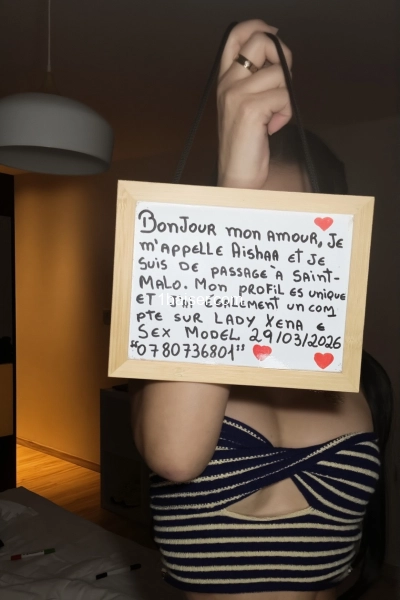 BonJour mon amour, Je
m'appelle Aishaa et Je
suis de passage à Saint-
Malo. Mon profil es unique
et
un com
pte sur LADY XENA e
Sex Model 29/03/2026
"0780736801"